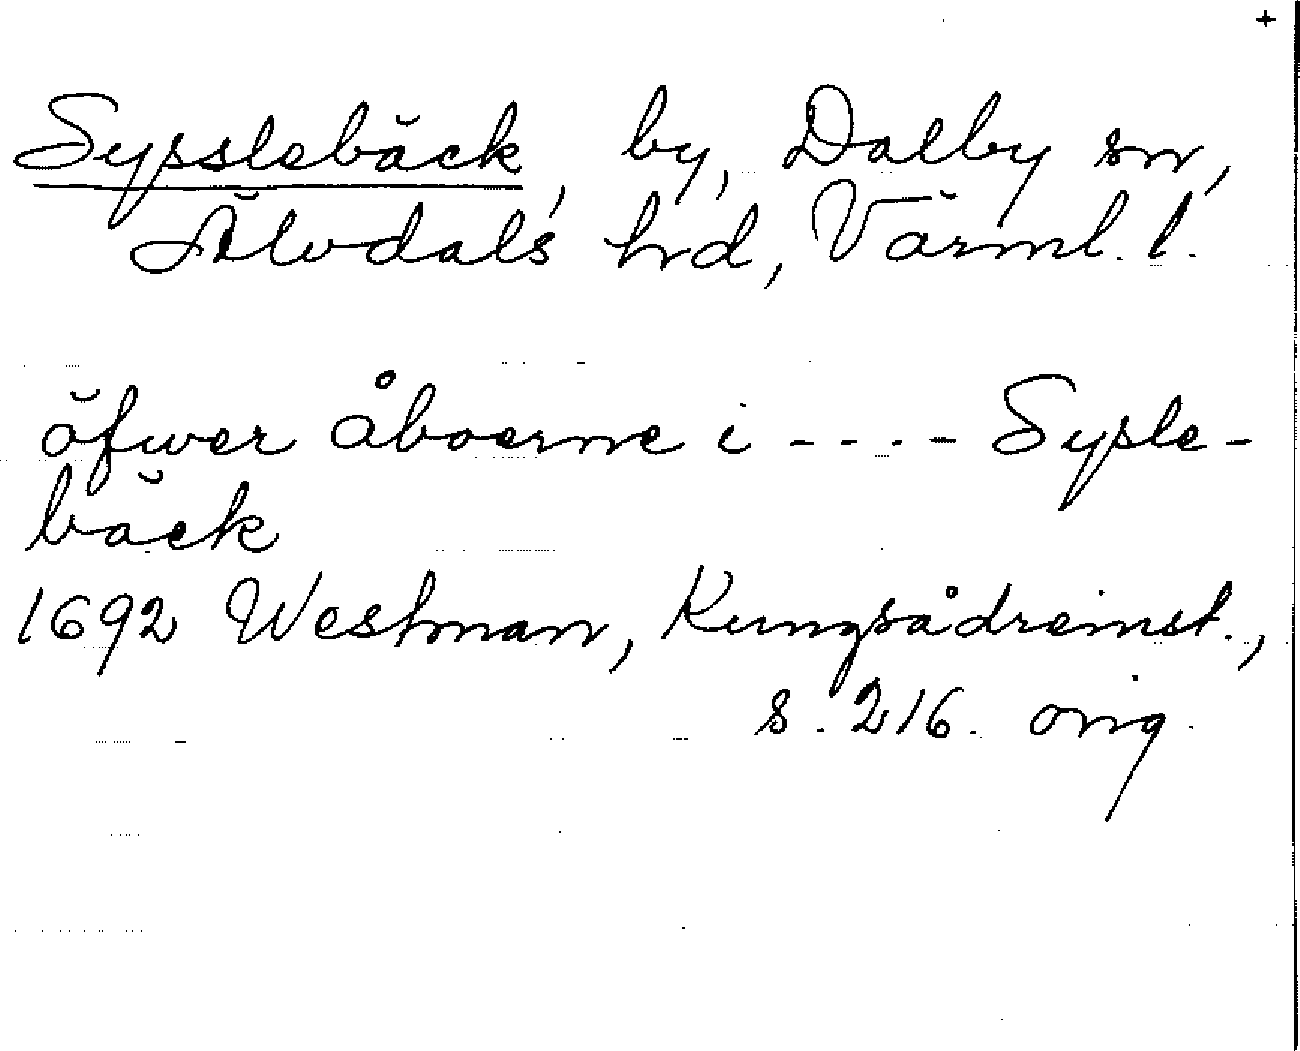 +
Sysslebäck, by, Dalby sn,
Älvdals hrd, Värml. l.
öfwer åboerne i - - - - Sysle-
bäck
1692 Westman, Kungsådreinst.,
s. 216. orig.